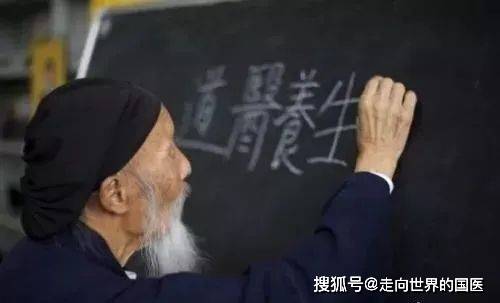 道醫養生
搜狐号@走向世界的国医